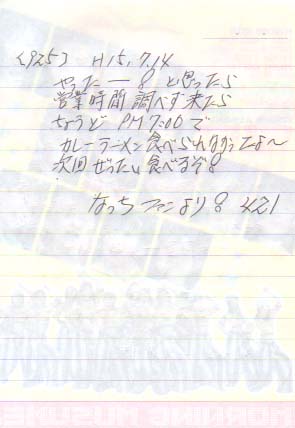 〈925〉 H15.7.14
やったー！と思ったら
営業時間調べず来たら
ちょうどPM7:00で
カレーラーメン食べられなかったよ〜
次回ぜったい食べるぞ！
なっちファンより！ 421
MORNING MUSUME